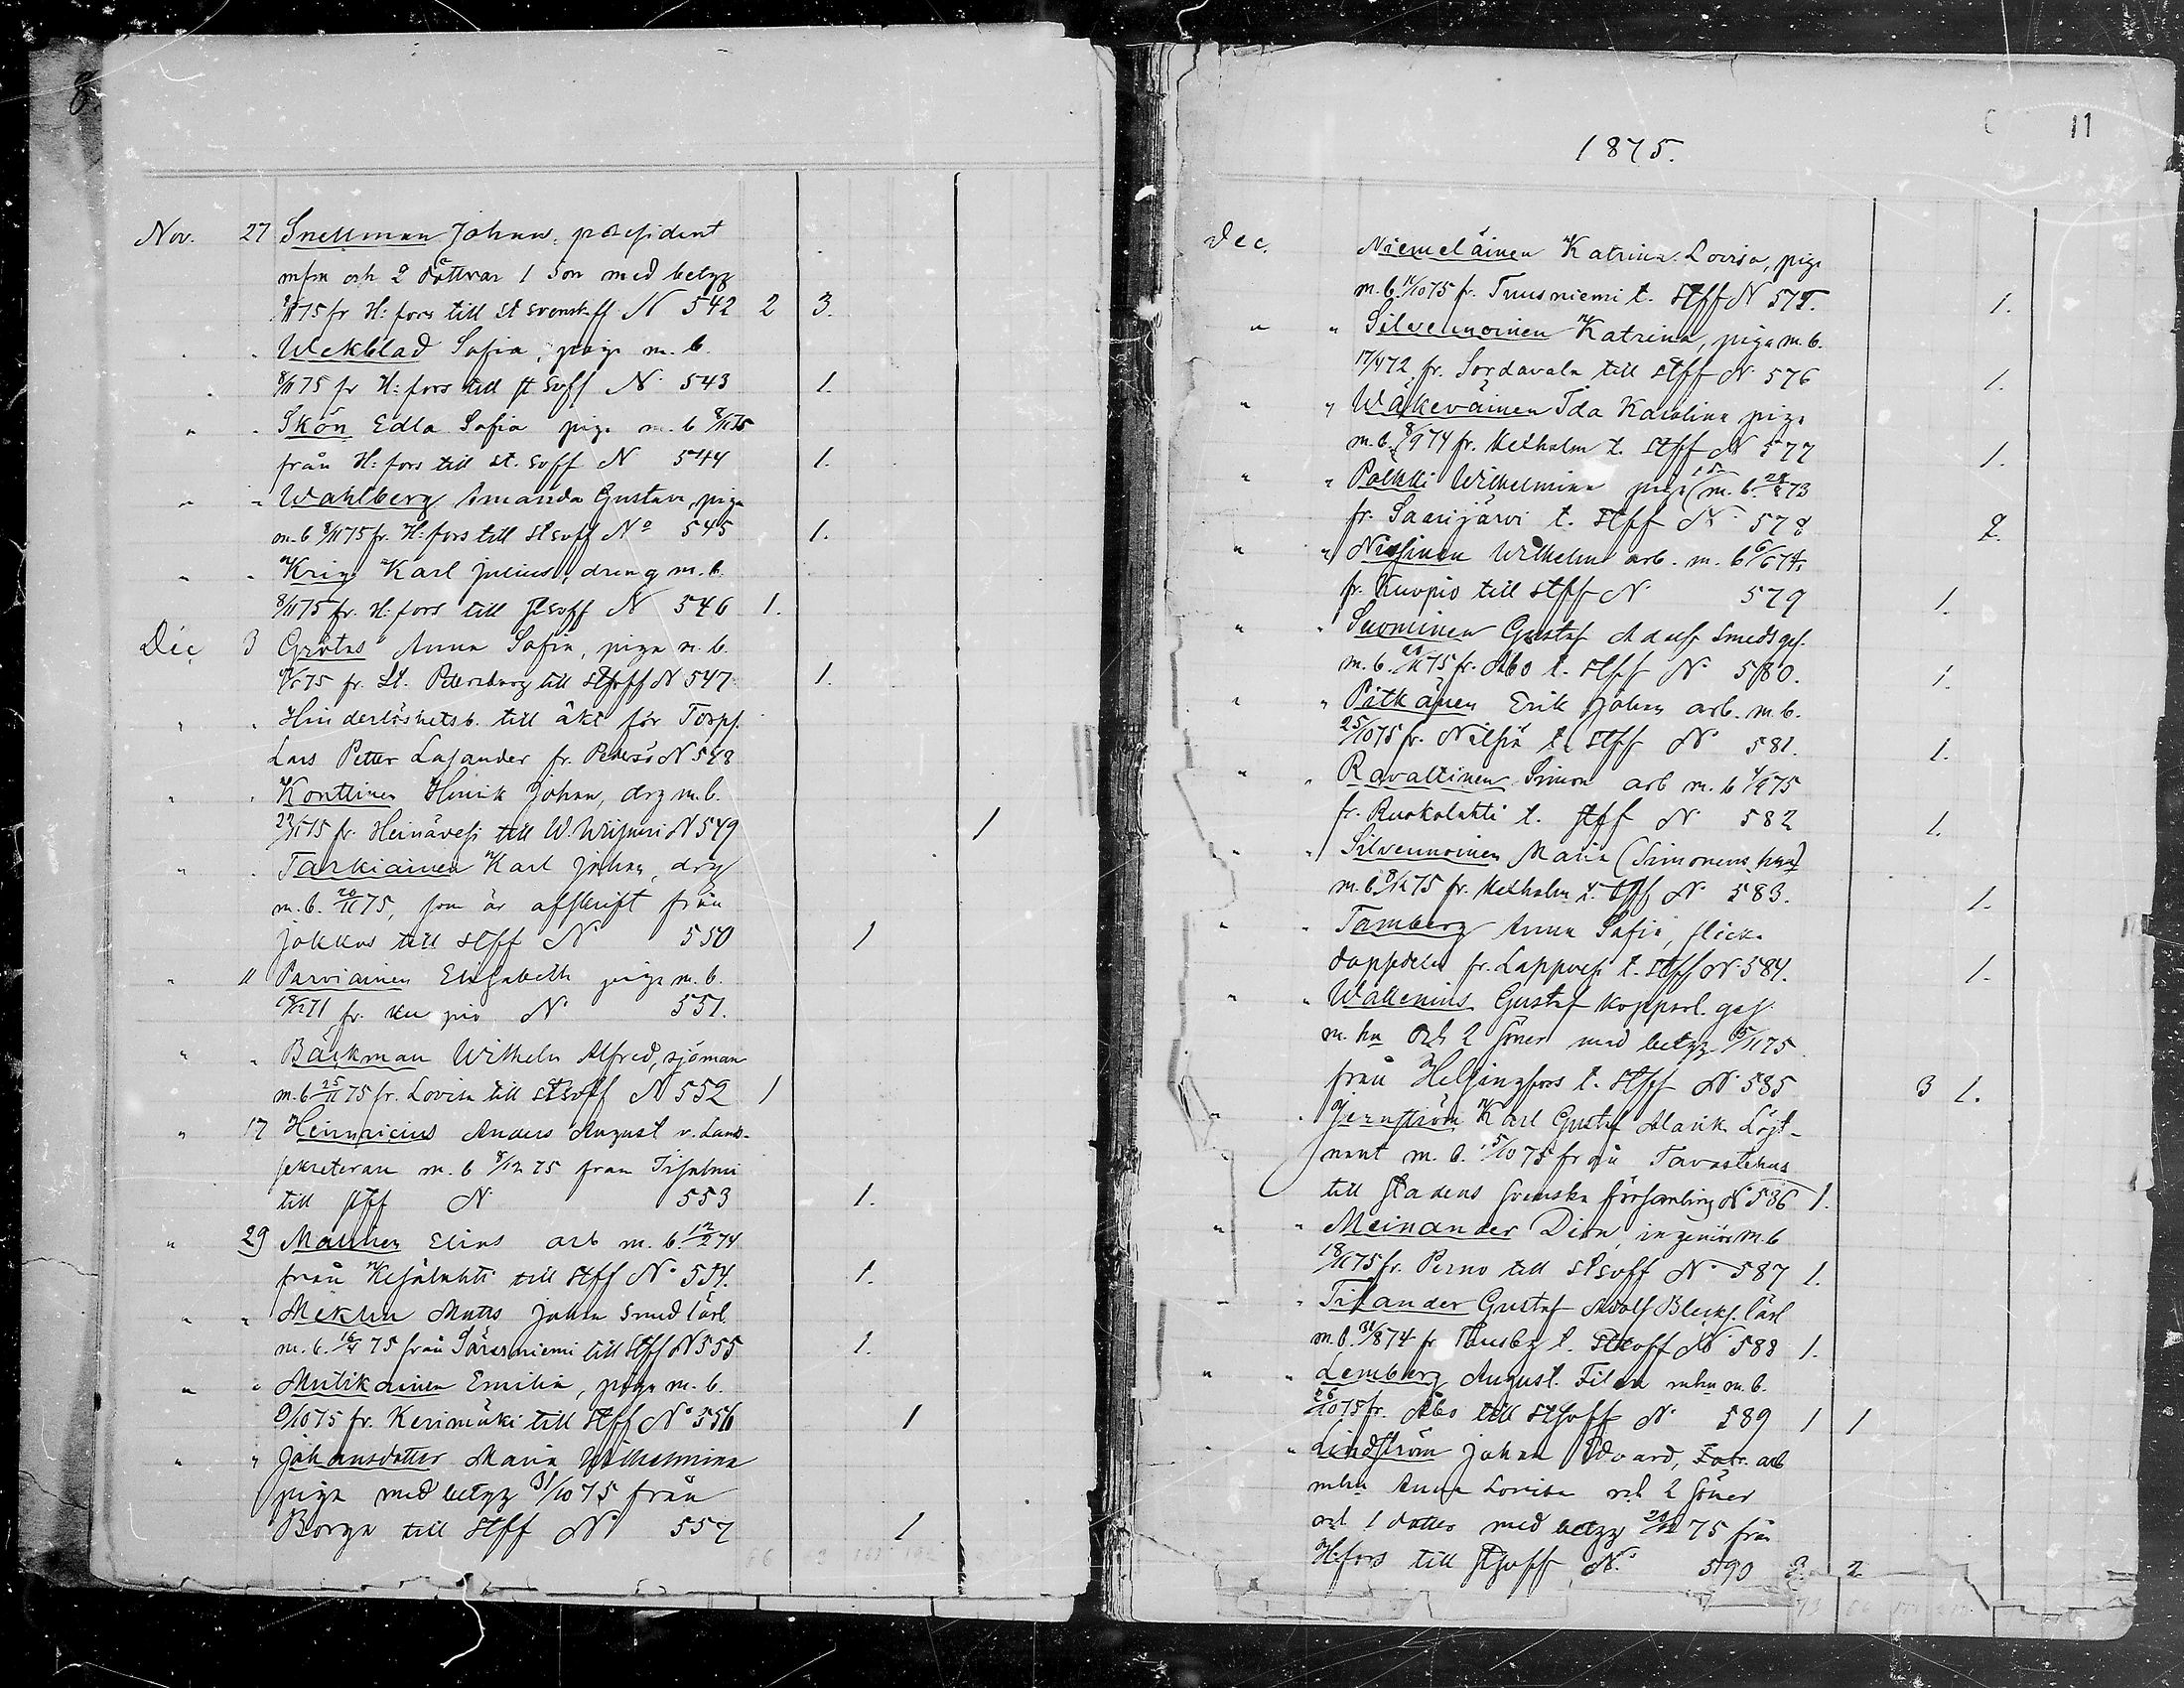 8.
Nov. 27 Snellman Johan, præsident
mfru och 2 döttrar 1 son med betyg
8/11 75 fr H:fors till St svensk ff N 542 2 3.
Wekblad Sofia, piga m. b.
8/11 75 fr H:fors till St Svff N 543 1.
" Skön Edla Sofia piga m. b 8/11 75
från H:fors till St. Svff N 544 1.
" " Wahlberg Amanda Gustava, piga
m. b 8/11 75 fr. H:fors till St Svff No 545 1.
" " Krig Karl Julius, dräng m. b.
8/11 75 fr. H:fors till St Svff N 546 1.
Dec 3 Grötas Anna Sofia, piga m. b.
75 fr. St. Petersburg till St Svff N 547 1.
" " Hinderlöshetsb. till äkt för Torpf.
Lars Petter Lasander fr. N 548
" " Konttinen Henrik Johan, drg m. b.
75 fr. Heinävesi till W. Wiipuri N 549 1
" " Tarkiainen Karl Johan, drg
m. b. 20/11 75, som är afskrift från
Jokkas till Stff N 550 1
" 11 Parviainen Elisabeth piga m. b.
71 fr. Kuopio N 551.
" " Bäckman Wilhelm Alfred, sjöman
m. b 25/11 75 fr. Lovisa till St Svff N 552 1
" 17 Heinricius Anders August v. Land-
sekreterare m. b 8/12 75 från Iisalmi
till Stff N 553 1.
" 29 Manner Elias arb m. b. 12/2 74
från Kesälahti till Stff No 554. 1.
" " Meklin Matts Johan Smed lärl
m. b. 75 från Säräisniemi till Stff N 555 1.
" " Mutikainen Emilia, piga m. b.
9/10 75 fr. Kerimäki till Stff No 556 1
" " Johansdotter Maria Wilhelmina
piga med betyg 31/10 75 från
Borgå till Stff No 557 1
1875.
11
Dec. Niemeläinen Katrina Lovisa, piga
m. b. 11/10 75 fr. Tuusniemi t. Stff N 575. 1.
" " Silvennoinen Katrina, piga m. b.
17/4 72 fr. Sordavala till Stff N 576 1.
" " Wäkeväinen Ida Karolina piga
m. b. 8/9 74 fr. Kexholm t. Stff N 577 1.
" " Polkki Wilhelmina piga (1 d m. b. 73
fr. Saarijärvi t. Stff N 578 2.
" " Nissinen Wilhelm arb. m. b 6/6 74.
fr. Kuopio till Stff N 579 1.
" " Suominen Gustaf Adolf Smedsges.
m. b. 75 fr. Åbo t. Stff N 580. 1.
" " Pitkänen Erik Johan arb. m. b.
25/10 75 fr. Nilsiä t. Stff N 581. 1.
" " Ravattinen Simon arb m. b 4/9 75
fr. Ruokolahti t. Stff N 582 1.
" " Silvennoinen Maria (Simonens hu)
m. b. 75 fr. Kexholm t. Stff N 583. 1.
" " Tamberg Anna Sofia, flicka
dopsedel fr. Lappvesi t. Stff N 584. 1.
" " Wallenius Gustaf kopparsl. ges.
m. hu och 2 söner med betyg 75
från Helsingfors t. Stff N 585 3 1.
" " Jernström Karl Gustaf Alarik Löjt-
nant m. b. 5/10 75 från Tavastehus
till stadens svenska församling N 586 1.
" " Meinander Dion, ingeniör m. b
18/11 75 fr. Perno till St Svff N 587 1.
" " Tilander Gustaf Adolf Blecks. lärl
m. b. 31/8 74 fr. Thusby t. St Svff N 588 1.
" " Lemberg August. Filen mhu m. b.
26/10 75 fr. Åbo till St Svff N 589 1 1
" " Lindström Johan Edvard, Fabr. arb
mhu Anna Lovisa och 2 söner
och 1 dotter med betyg 75 från
H:fors till St Svff N. 590 3. 2